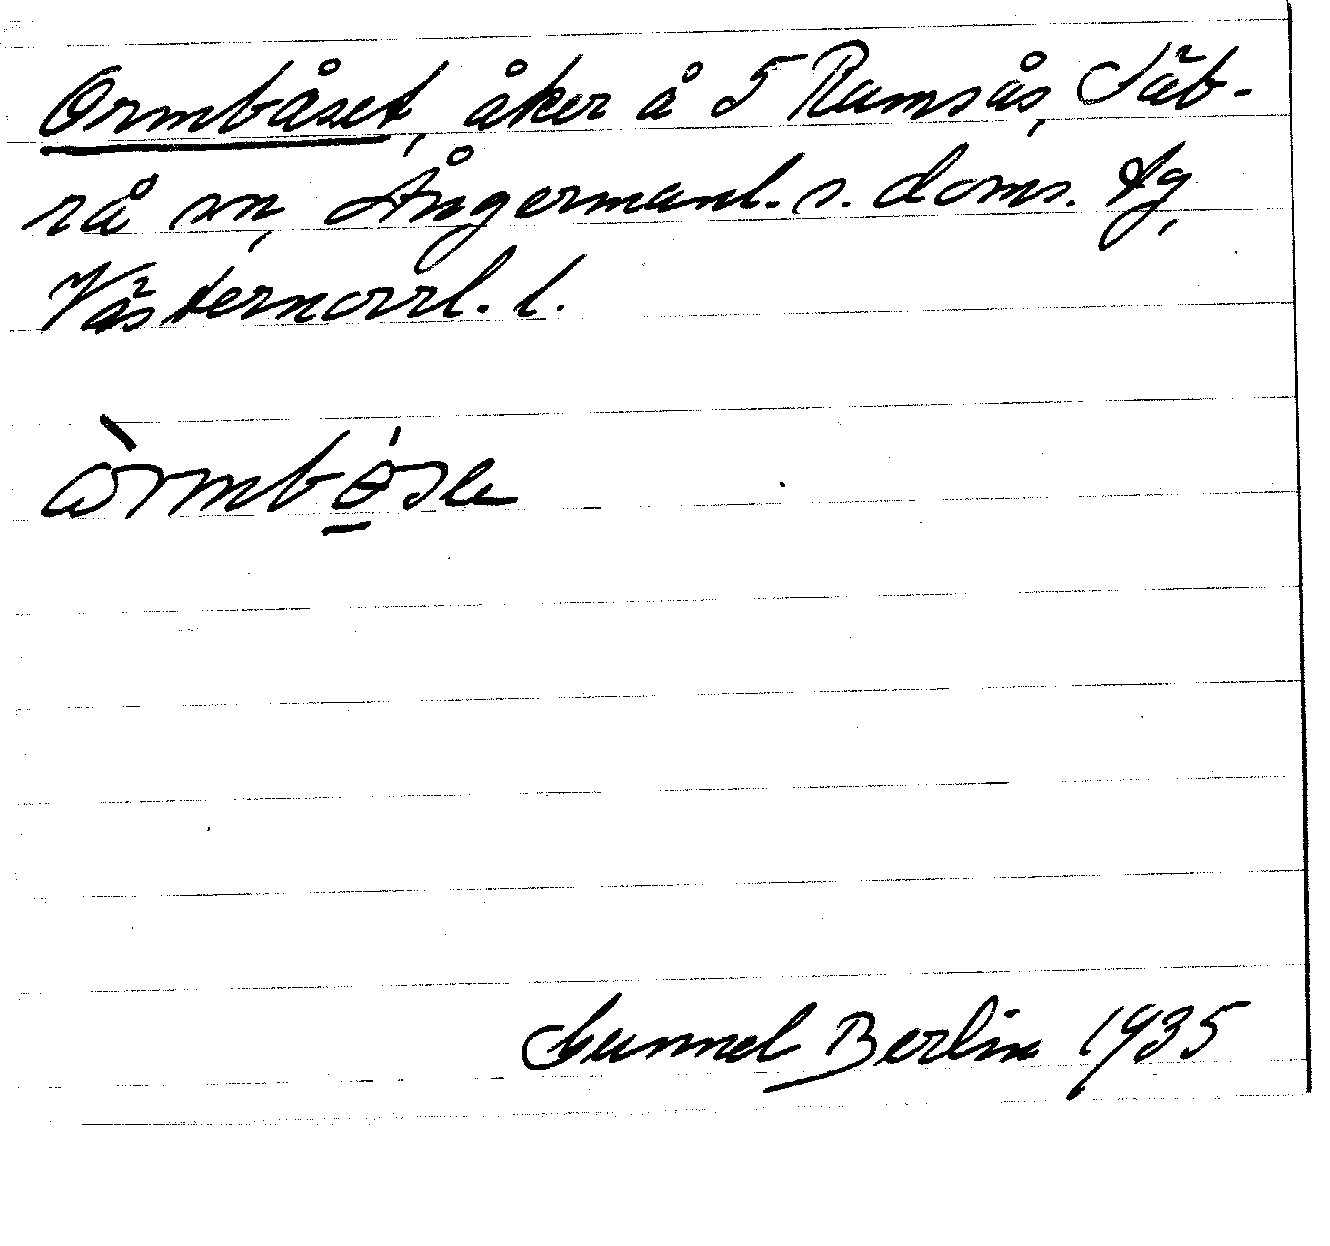 Ormbåset, åker å 5 Ramsås, Säb-
rå sn, Ångermanl. s. doms. tg,
Västernorrl. l.
Gunnel Berlin 1935